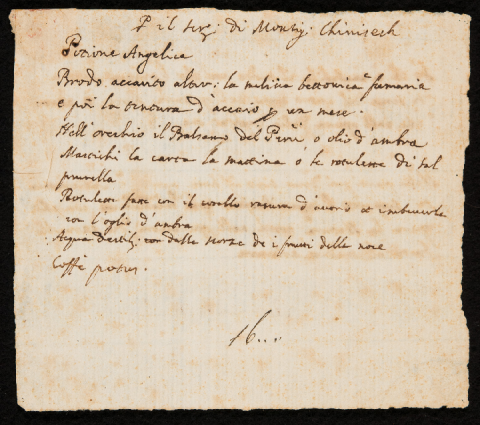 P il ser: di Monsig: Chinisech
Pozione Angelica
Brodo accavito altur: la melissa bettonica fumaria
e poi la tentura d'acciaio p un mese.
Nell'orecchio il Balsamo del Perù o olio d'ambra
Mastichi la carta la mattina ó le rotulette di sal
prunella
Rotulette fatte con il cuoallo rasura d'avorio et imbeverle
con l'oglio d'ambra
Acqua destil: con dalle scorze de i frutti delle noce
Coffè potus.
16..